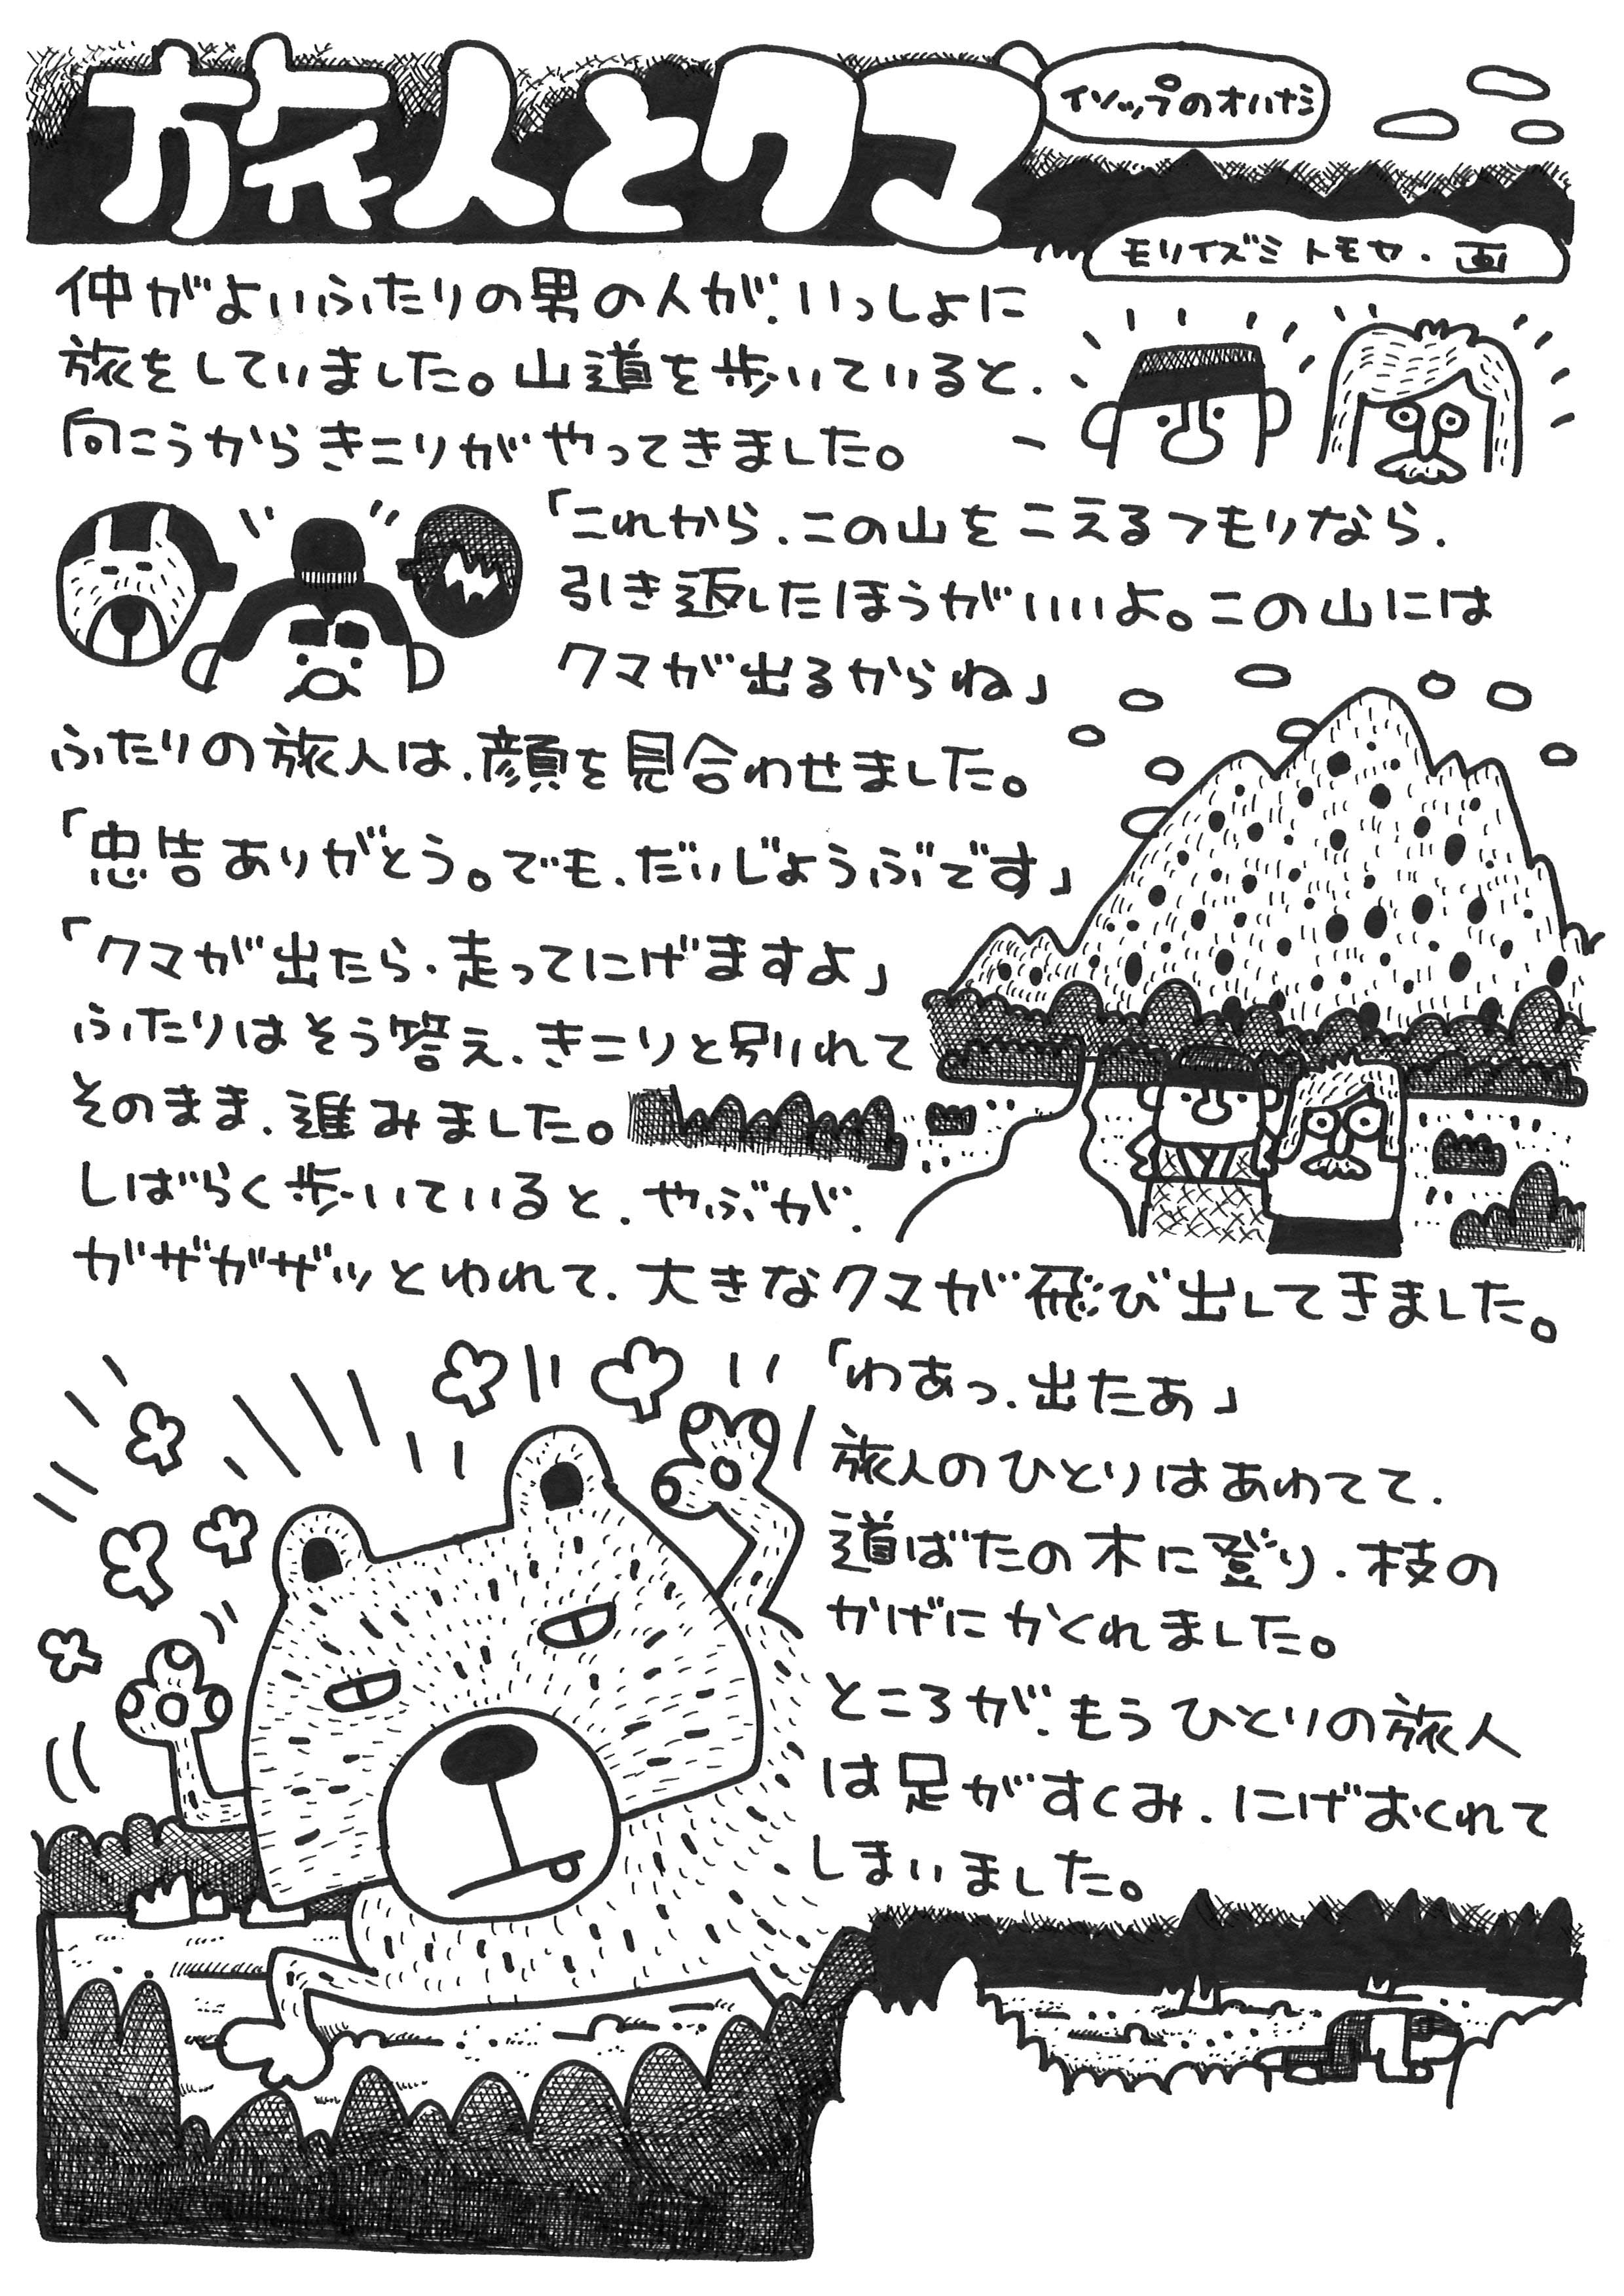 旅人とクマ
イソップのオハナシ
モリイズミトモヤ・画
仲がよいふたりの男の人が、いっしょに
旅をしていました。山道を歩いていると、
向こうからきこりがやってきました。
「これから、この山をこえるつもりなら、
引き返したほうがいいよ。この山には
クマが出るからね」
ふたりの旅人は、顔を見合わせました。
「忠告ありがとう。でも、だいじょうぶです」
「クマが出たら、走ってにげますよ」
ふたりはそう答え、きこりと別れて
そのまま、進みました。
しばらく歩いていると、やぶが、
ガザガザッとわれて、大きなクマが飛び出してきました。
「わあっ、出たあ」
旅人のひとりはあわてて、
道ばたの木に登り、枝の
かげにかくれました。
ところが、もうひとりの旅人
は足がすくみ、にげおくれて
しまいました。